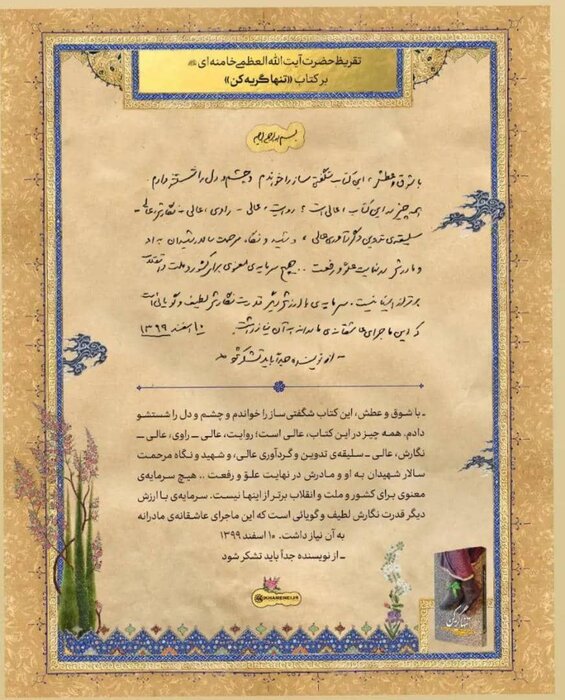 تقریظ حضرت آیت الله العظمی خامنه ای
بر کتاب «تنها گریه کن»
بسم الله الرحمن الرحیم
با شوق و عطش، این کتاب شگفتی ساز را خواندم و چشم و دل را شستشو دادم.
همه چیز در این کتاب، عالی است؛ روایت، عالی - راوی، عالی - نگارش، عالی -
سلیقه‌ی تدوین و گردآوری عالی، و شهید و نگاه مرحمت سالار شهیدان به او
و مادرش در نهایت علوّ و رفعت .. هیچ سرمایه‌ی معنوی برای کشور و ملت و انقلاب
برتر از اینها نیست. سرمایه‌ی با ارزش دیگر قدرت نگارش لطیف و گویائی است
که این ماجرای عاشقانه‌ی مادرانه به آن نیاز داشت. ۱۰ اسفند ۱۳۹۹
- از نویسنده جداً باید تشکر شود
ـ با شوق و عطش، این کتاب شگفتی‌ساز را خواندم و چشم و دل را شستشو
دادم. همه چیز در این کتاب، عالی است؛ روایت، عالی ـ راوی، عالی ـ
نگارش، عالی ـ سلیقه‌ی تدوین و گردآوری عالی، و شهید و نگاه مرحمت
سالار شهیدان به او و مادرش در نهایت علوّ و رفعت .. هیچ سرمایه‌ی
معنوی برای کشور و ملت و انقلاب برتر از اینها نیست. سرمایه‌ی با ارزش
دیگر قدرت نگارش لطیف و گویائی است که این ماجرای عاشقانه‌ی مادرانه
به آن نیاز داشت. ۱۰ اسفند ۱۳۹۹
ـ از نویسنده جداً باید تشکر شود
KHAMENEI.IR
تنها گریه کن